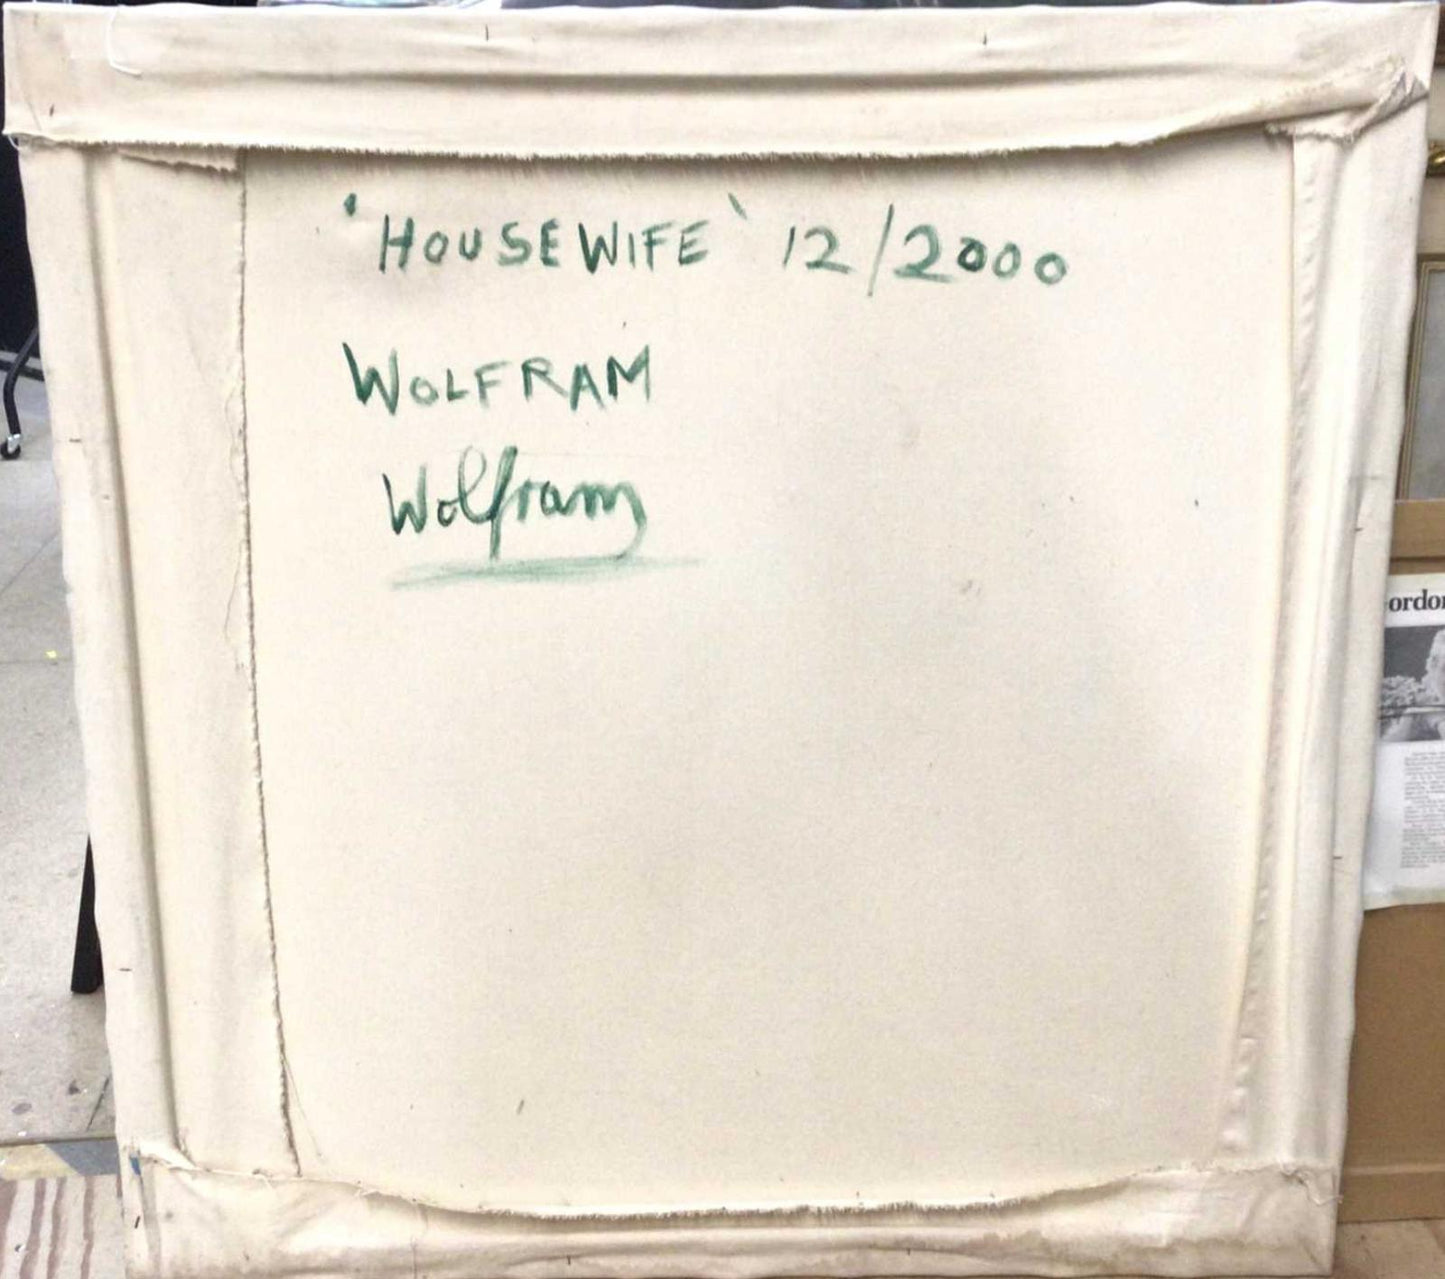 'HOUSEWIFE' 12/2000
WOLFRAM
Wolfram
ordon